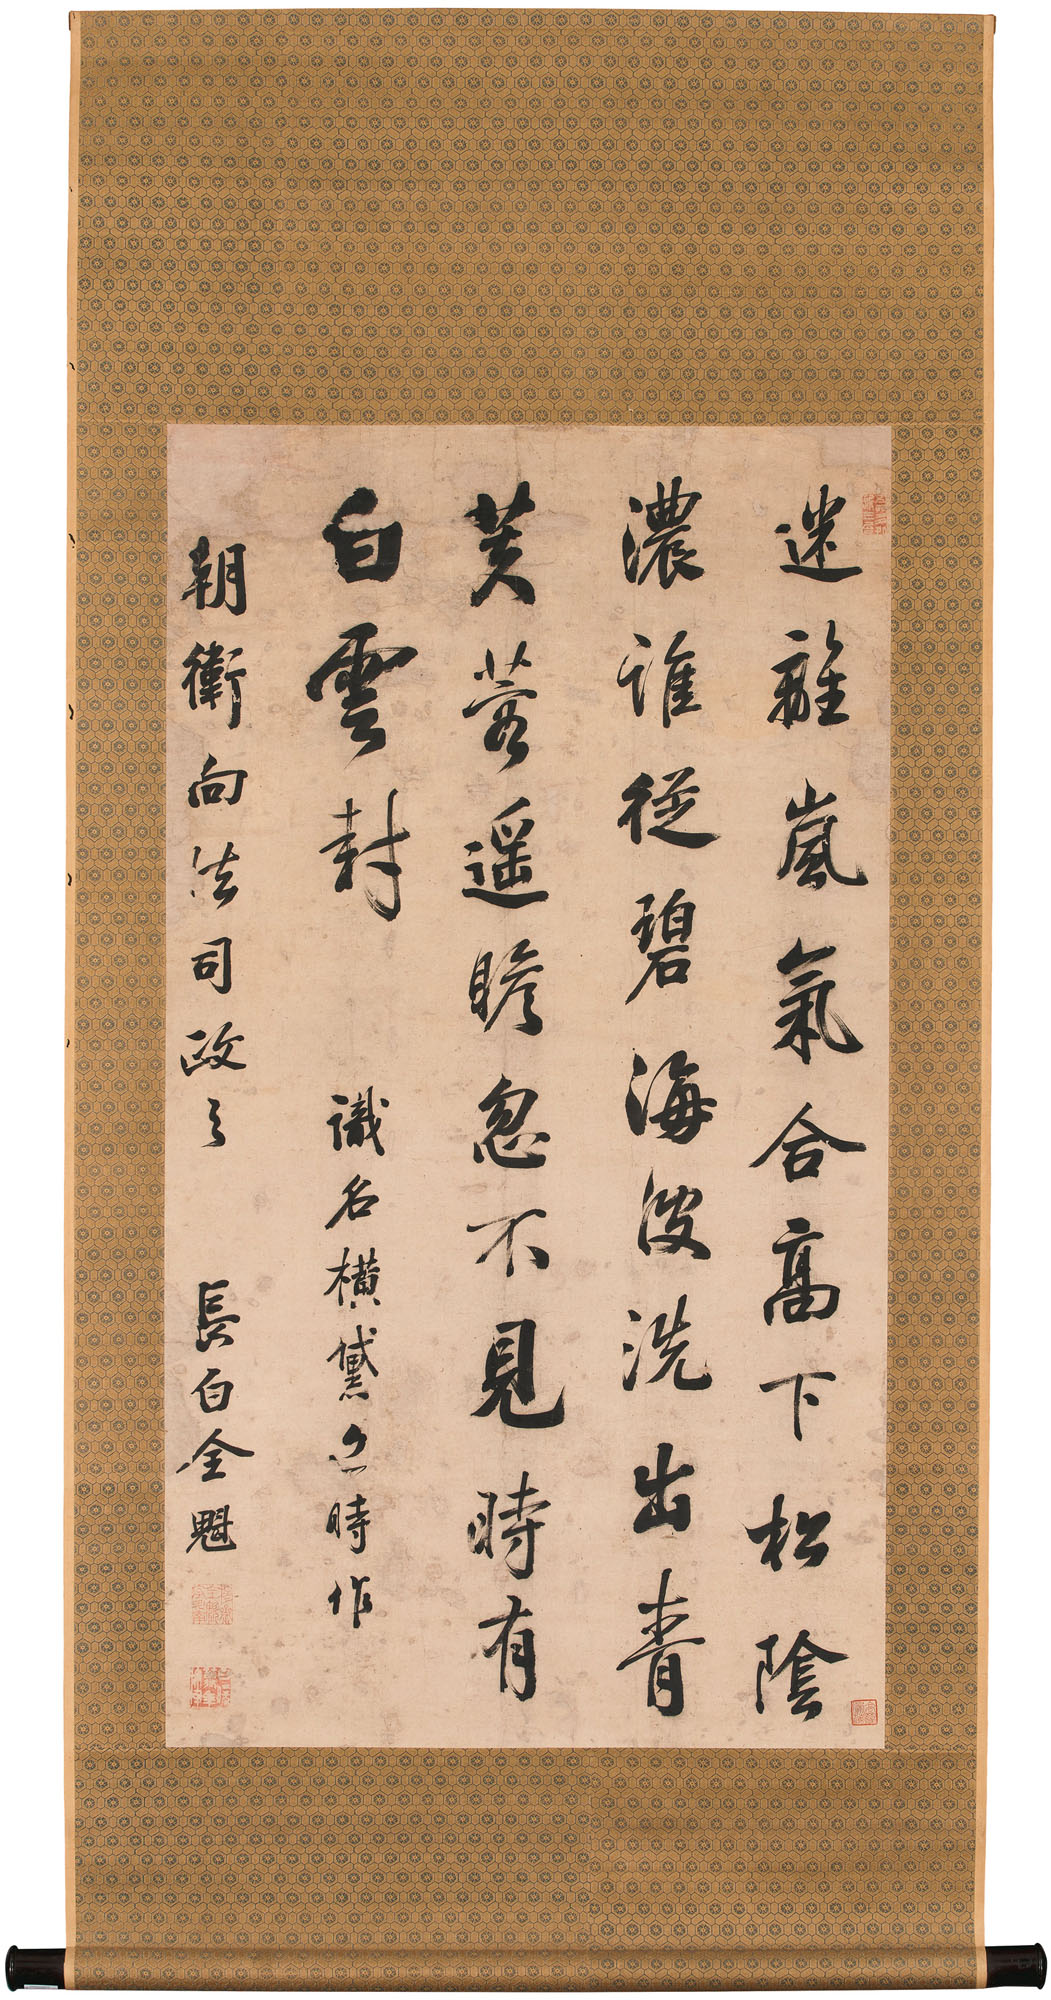 迷離嵐氣合高下松陰
濃誰從碧海波洗出青
芙蓉遥瞻忽不見時有
白雲封
識名橫黛之時作
朝衛向法司政之
長白全魁